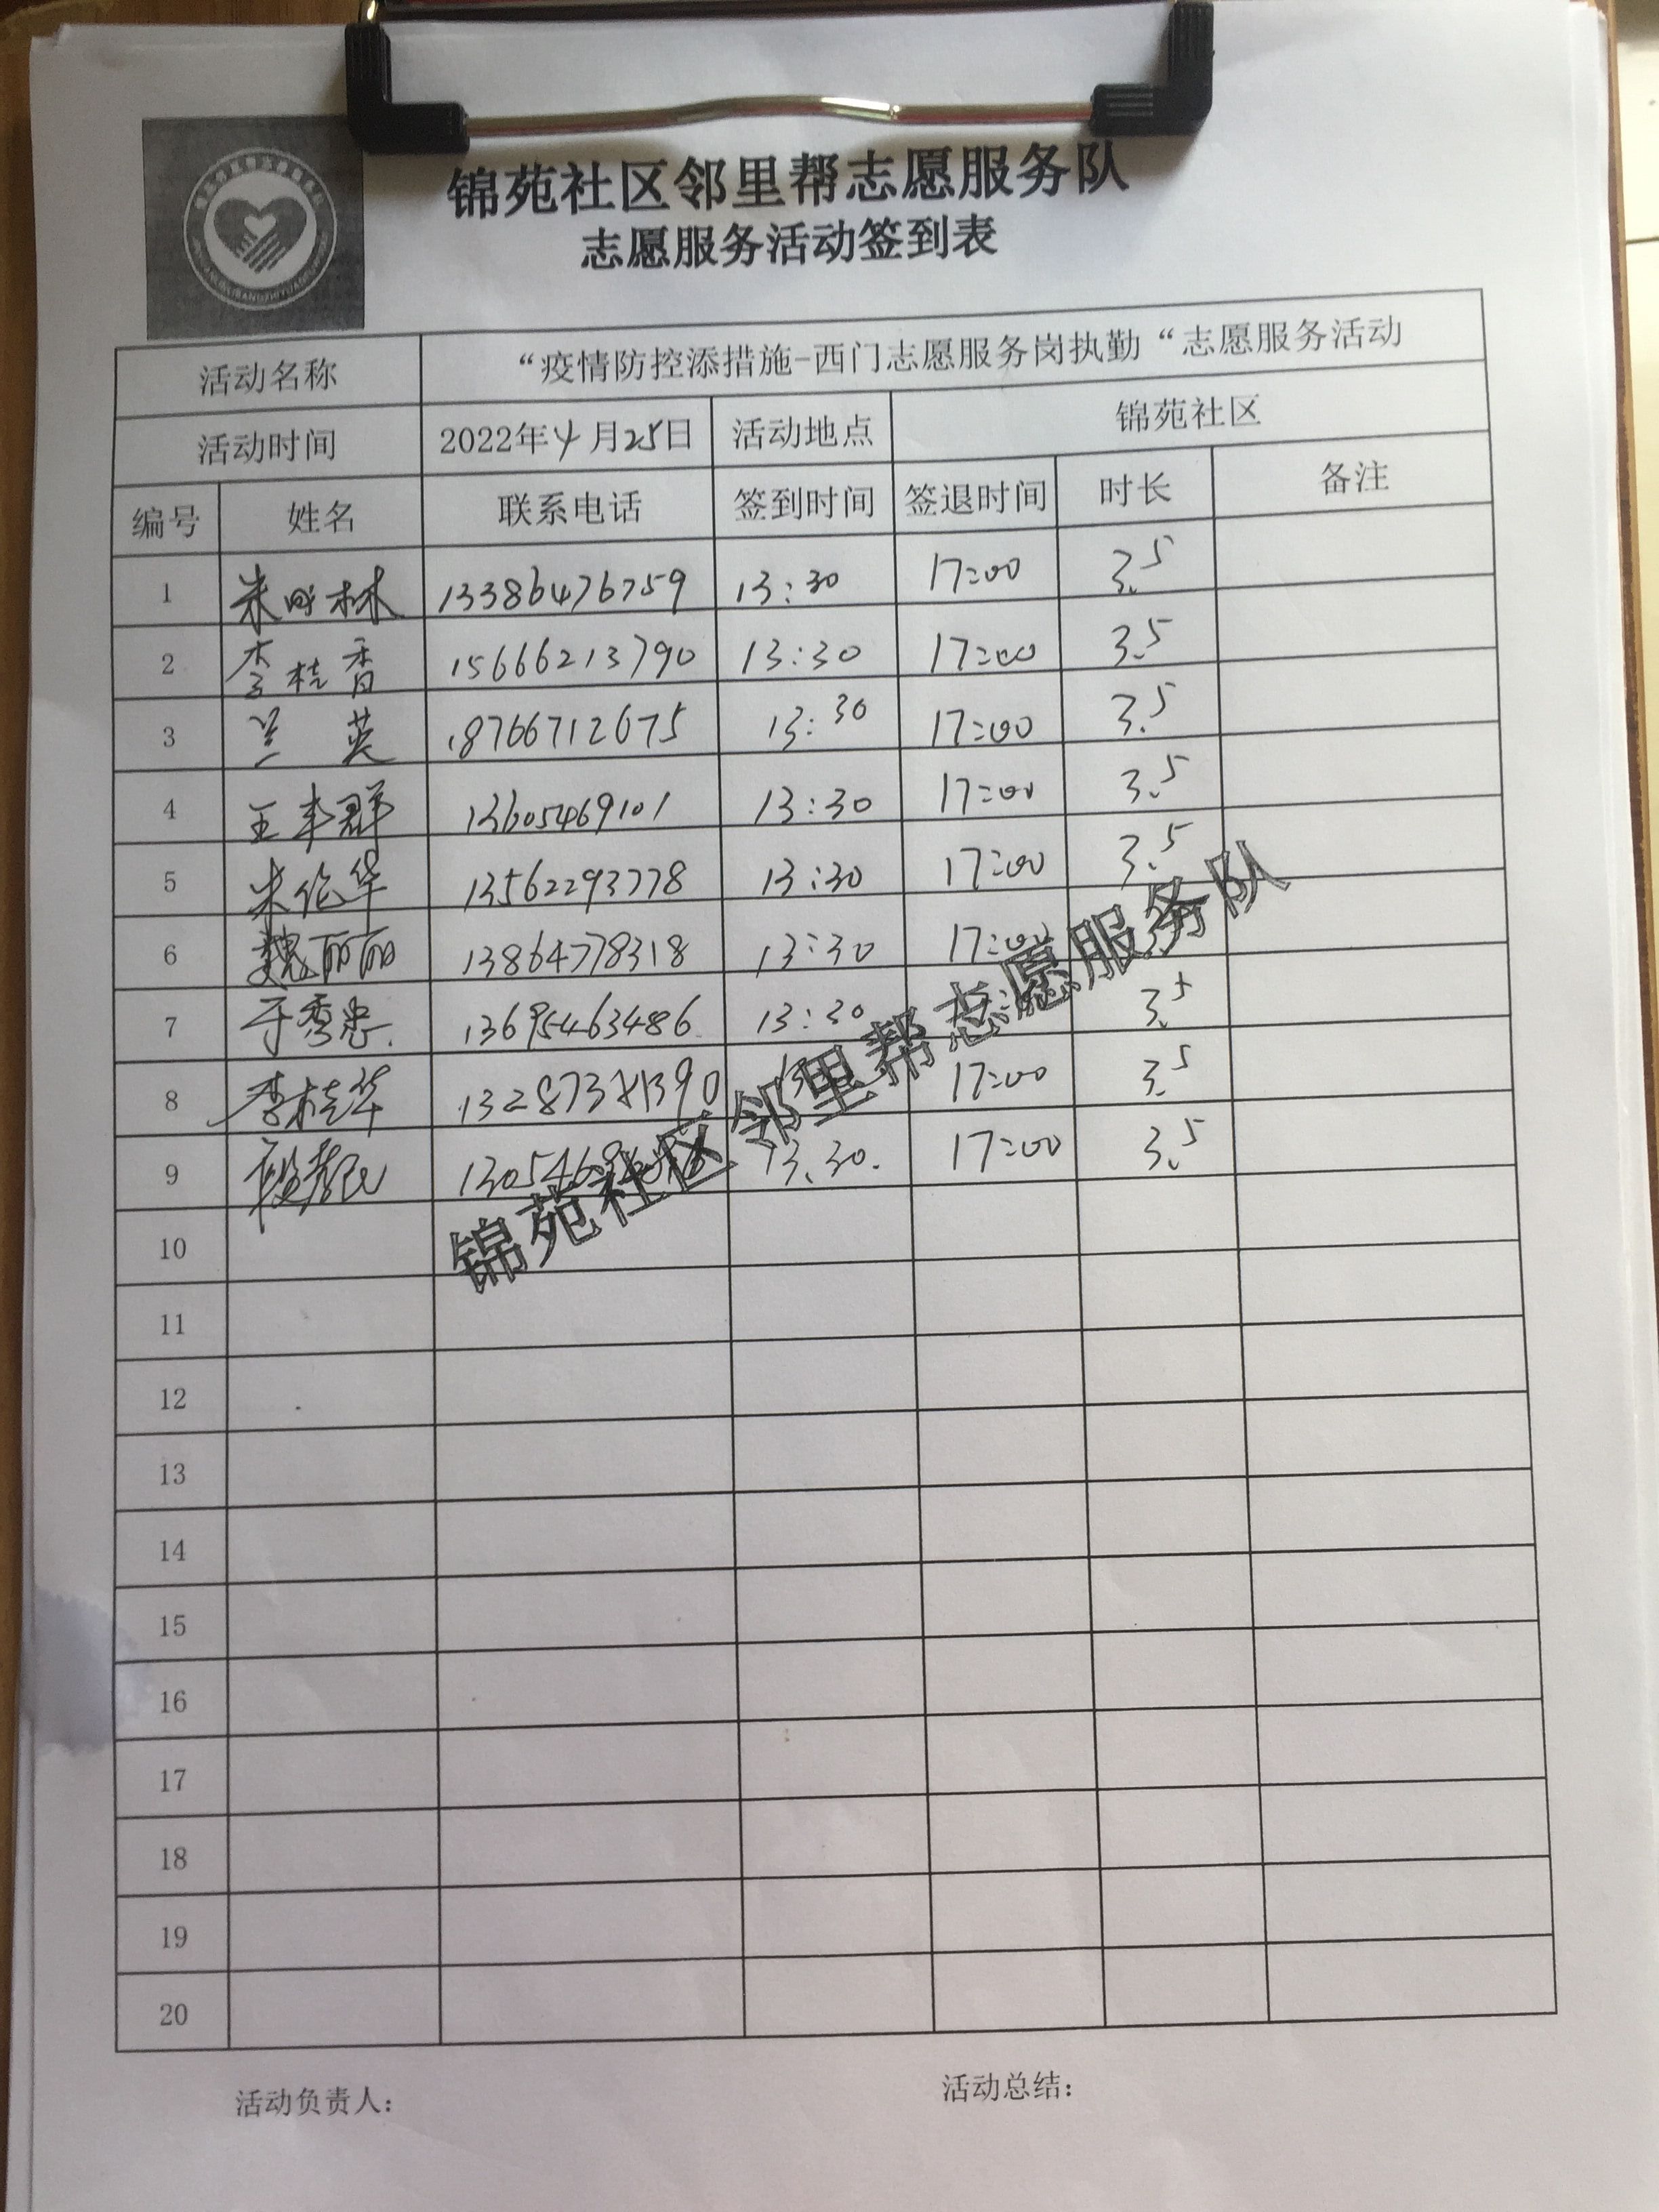 锦苑社区邻里帮志愿服务队
志愿服务活动签到表
活动名称 “疫情防控添措施-西门志愿服务岗执勤“志愿服务活动
活动时间 2022年4月25日 活动地点 锦苑社区
编号 姓名 联系电话 签到时间 签退时间 时长 备注
1 林 13386476759 13:30 17:00 3.5
2 李桂香 15666213790 13:30 17:00 3.5
3 兰英 18766712675 13:30 17:00 3.5
4 王丰群 13605469101 13:30 17:00 3.5
5 朱伦华 13562293778 13:30 17:00 3.5
6 魏丽丽 13864778318 13:30 17:00
7 于秀忠 13695463486 13:30 3.5
8 李桂华 17:00 3.5
9 13.30. 17:00 3.5
锦苑社区邻里帮志愿服务队
10
11
12
13
14
15
16
17
18
19
20
活动负责人: 活动总结: